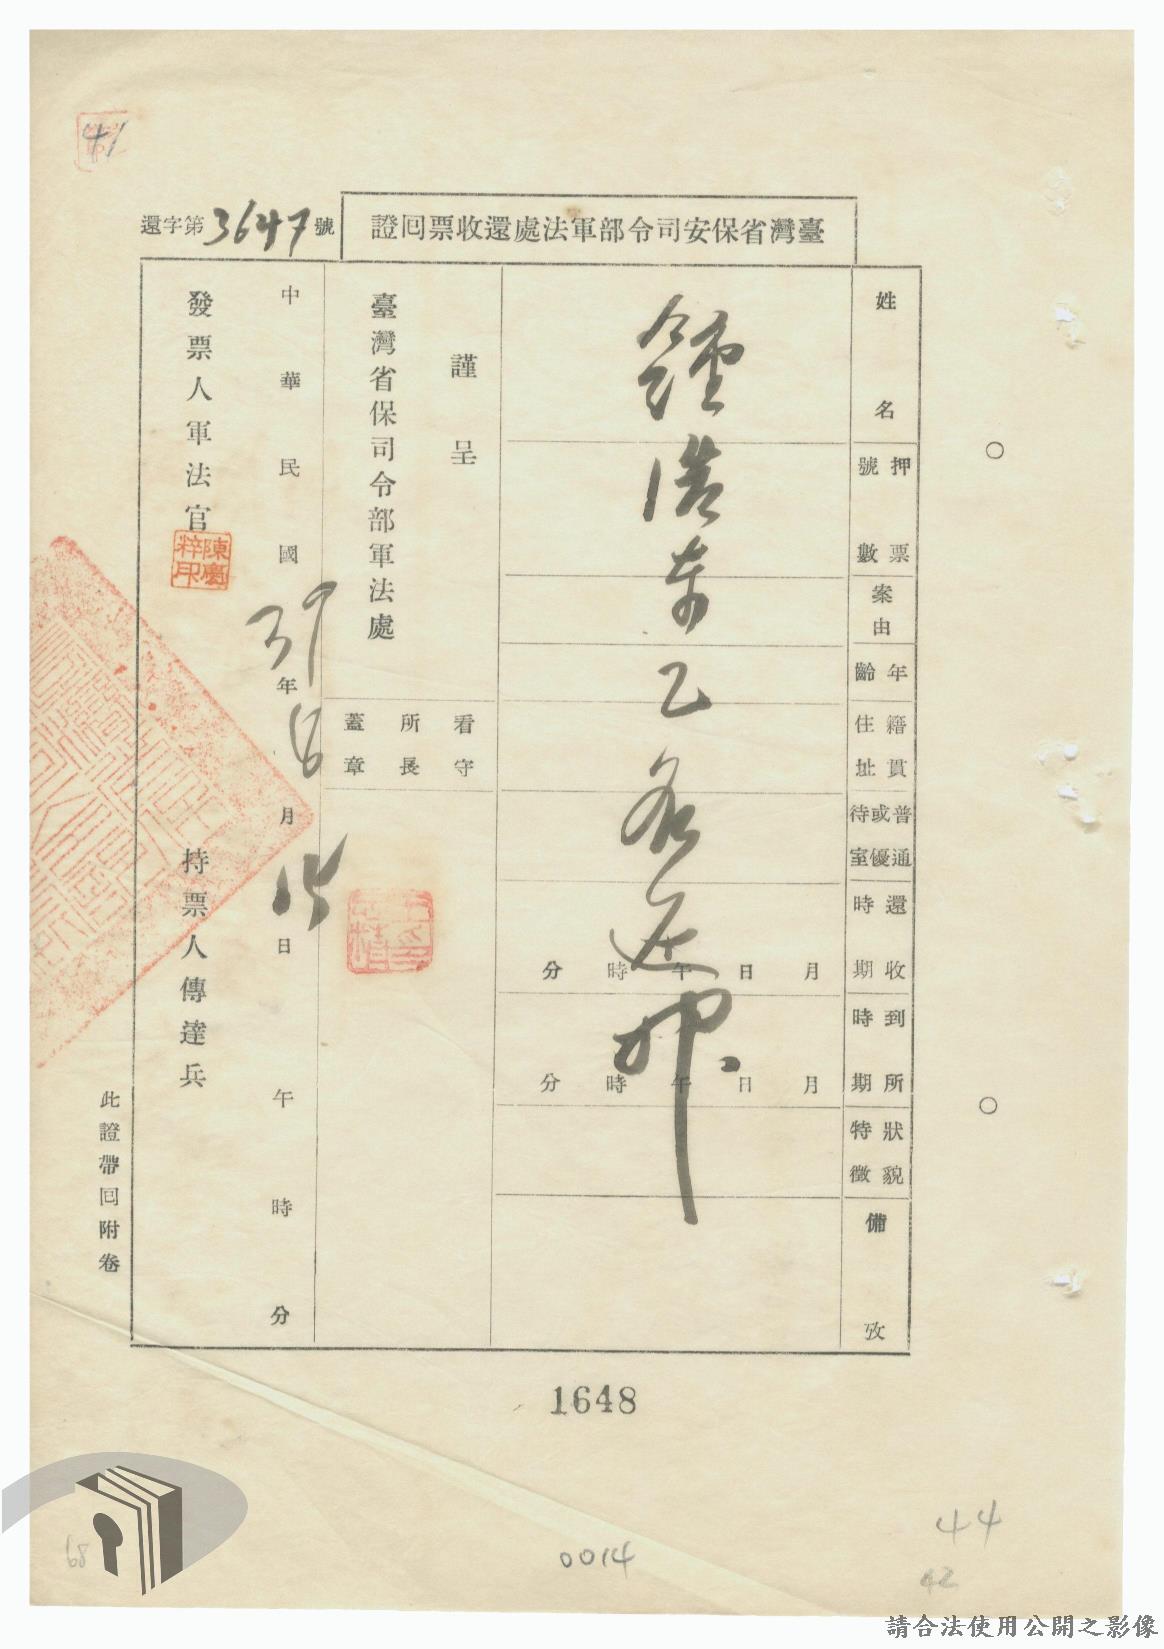 41
臺灣省保安司令部軍法處還收票回證
還字第3647號
姓名
押票號數
案由
年齡
籍貫住址
普通或優待室
還收時期
到所時期
狀貌特徵
備攷
鍾浩東乙名還押
月日午時分
月日午時分
謹呈
臺灣省保司令部軍法處
看守所長蓋章
中華民國39年 月 日午時分
發票人軍法官
陳慶粹印
持票人傳達兵
此證帶回附卷
1648
0014
44
42
68
請合法使用公開之影像